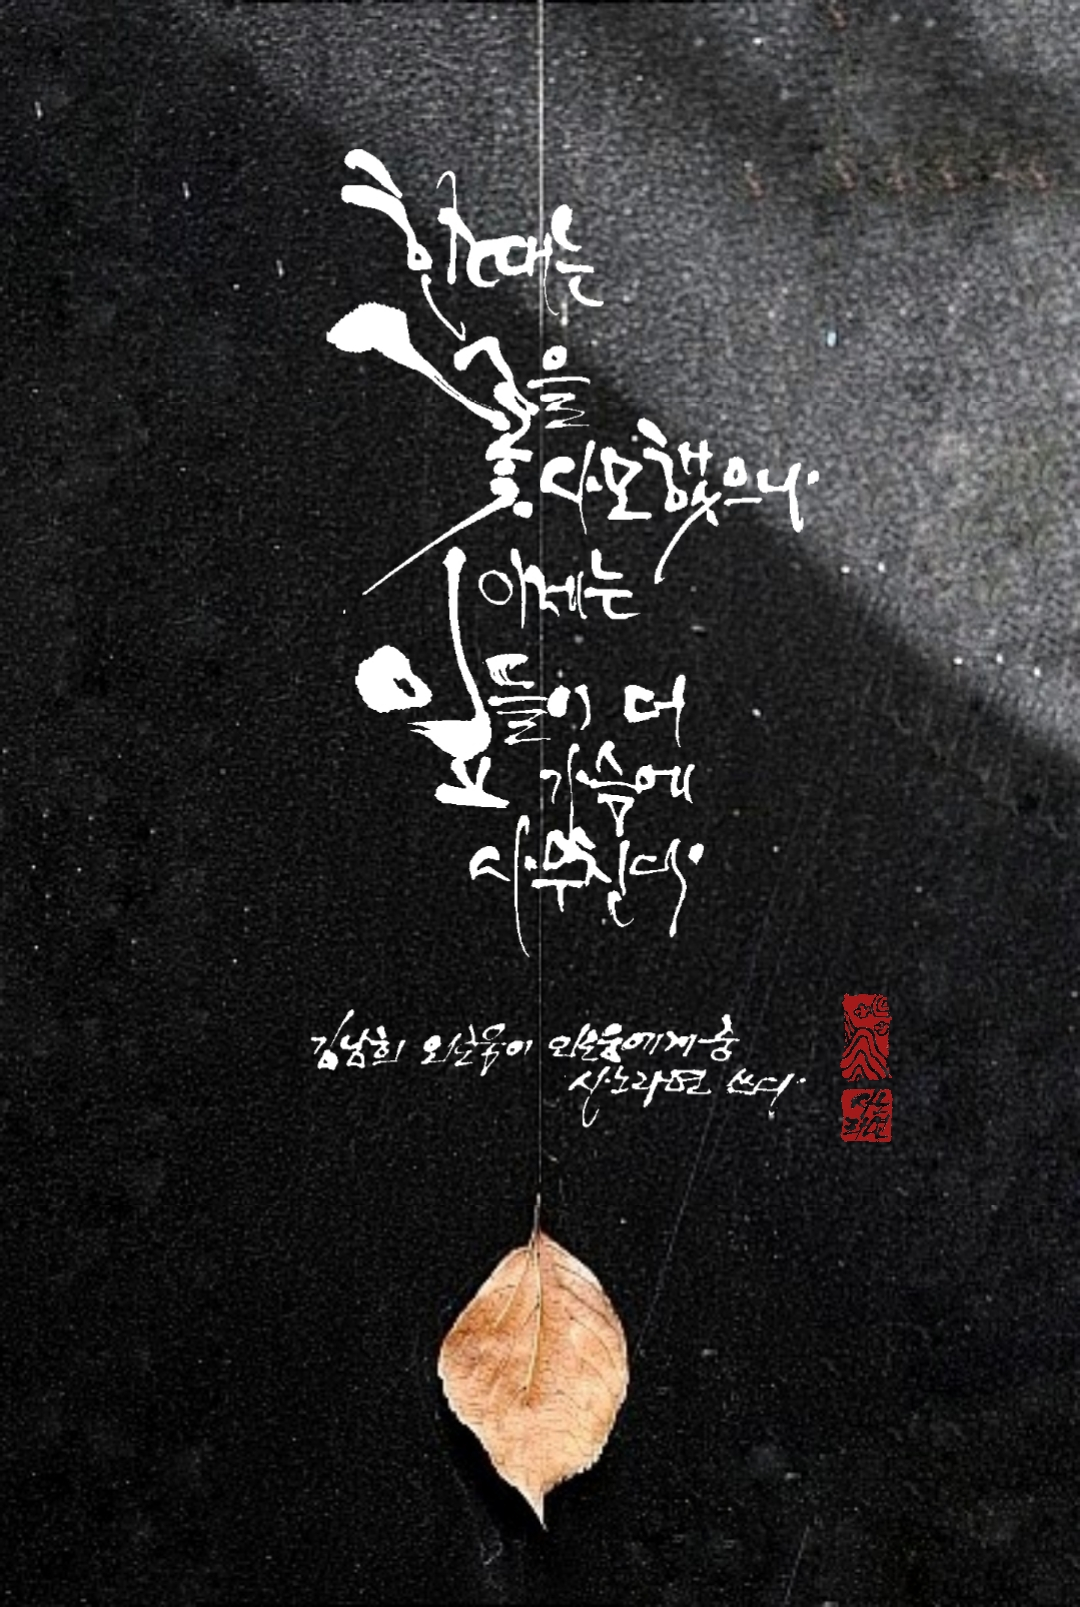 한때는
꽃을
사모했으나
이제는
잎들이 더
가슴에
사무친다
김남희 외로움이 외로움에게 중
시노라면 쓰다